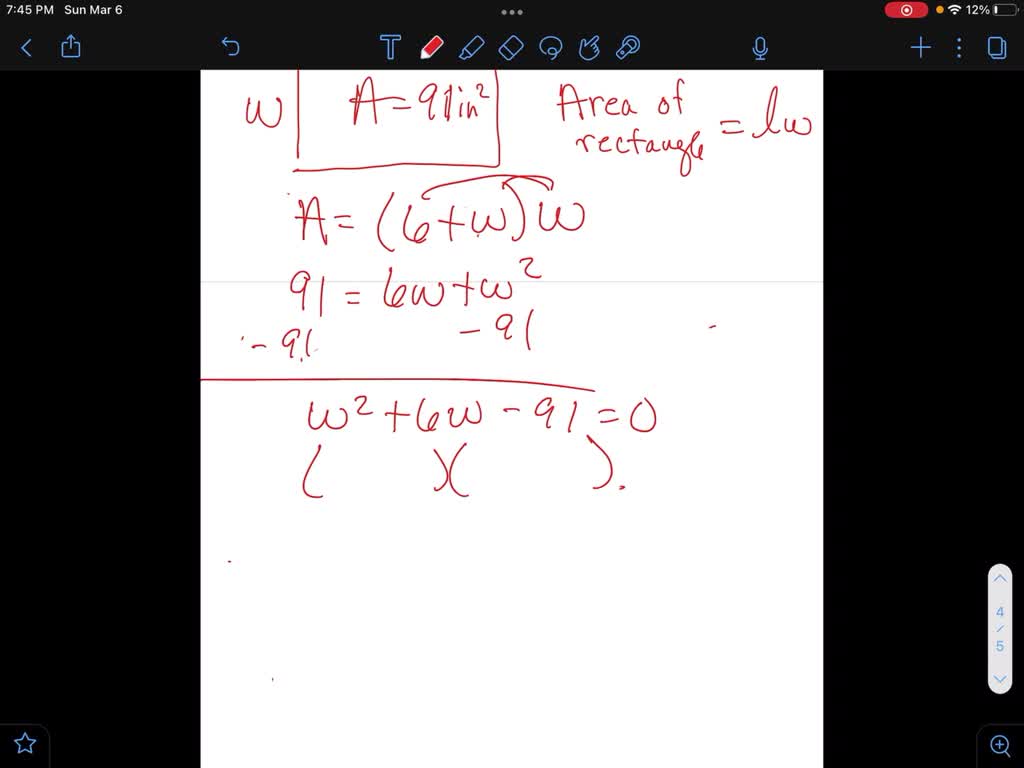 7:45 PM Sun Mar 6
12%
w A = 91in²
Area of rectangle = lw
A = (6+w)w
91 = 6w+w²
-91 -91
w²+6w-91=0
( )( ).
4
/
5